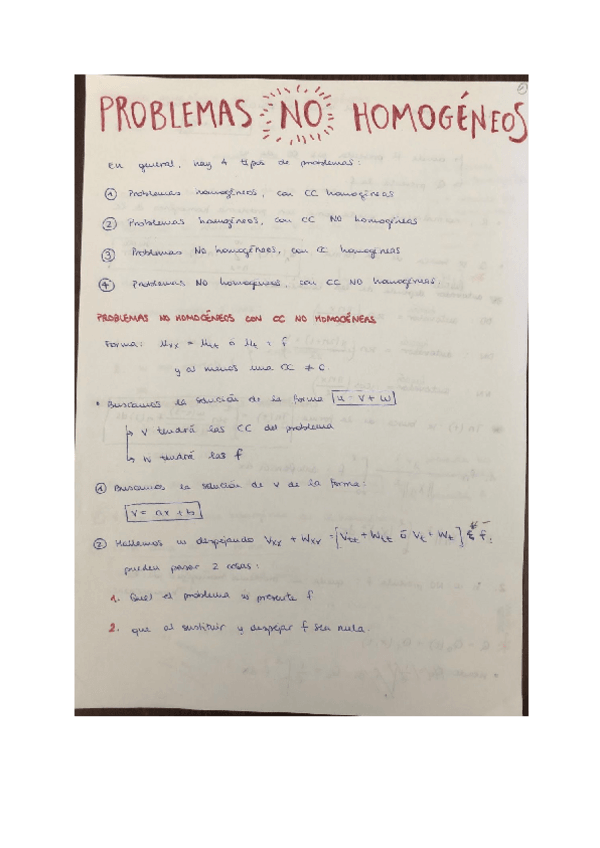 PROBLEMAS NO HOMOGÉNEOS
En general, hay 4 tipos de problemas:
① Problemas homogéneos, con CC homogéneas
② Problemas homogéneos, con CC NO homogéneas
③ Problemas NO homogéneos, con CC homogéneas
④ Problemas NO homogéneos, con CC NO homogéneas.
PROBLEMAS NO HOMOGÉNEOS CON CC NO HOMOGÉNEAS
Forma: uxx = utt ó ut ± f
y al menos una CC ≠ 0.
• Buscamos la solución de la forma u = v + w
v tendrá las CC del problema
w tendrá las f
① Buscamos la solución de v de la forma:
v = ax + b
② Hallamos w despejando Vxx + Wxx = [Vtt + Wtt ó Vt + Wt] f:
pueden pasar 2 cosas:
1. Que el problema w presente f
2. que al sustituir y despejar f sea nula.